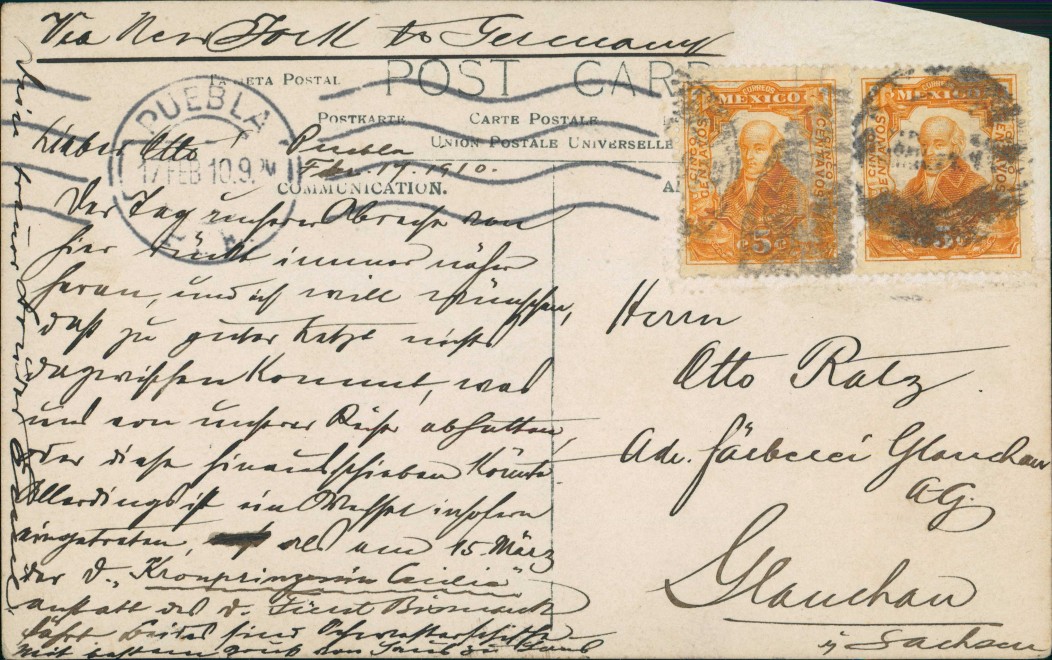 Via New York to Germany
TARJETA POSTAL
POST CARD
POSTKARTE
CARTE POSTALE
UNION POSTALE UNIVERSELLE
COMMUNICATION.
PUEBLA
17 FEB 10. 9
CORREOS
MEXICO
CINCO CENTAVOS
CINCO CENTAVOS
5
CORREOS
MEXICO
CINCO CENTAVOS
CINCO CENTAVOS
Lieber Otto
Puebla
Febr. 17. 1910.
Der Tag unserer Abreise von
hier rückt immer näher
heran, und ich will wünschen,
daß zu guter Letzt nichts
dazwischen kommt, was
uns von unserer Reise abhalten,
oder diese hinausschieben könnte.
Allerdings ist ein Wechsel insofern
eingetreten, als am 15. März
der D. "Kronprinzessin Cecilie"
anstatt des D. Fürst Bismarck
fährt. Beides sind Schwesterschiffe
Mit bestem Gruß von Haus zu Haus
Dein treuer Bruder
Herrn
Otto Ratz.
Adr. Färberei Glauchau
A.G.
Glauchau
i/ Sachsen